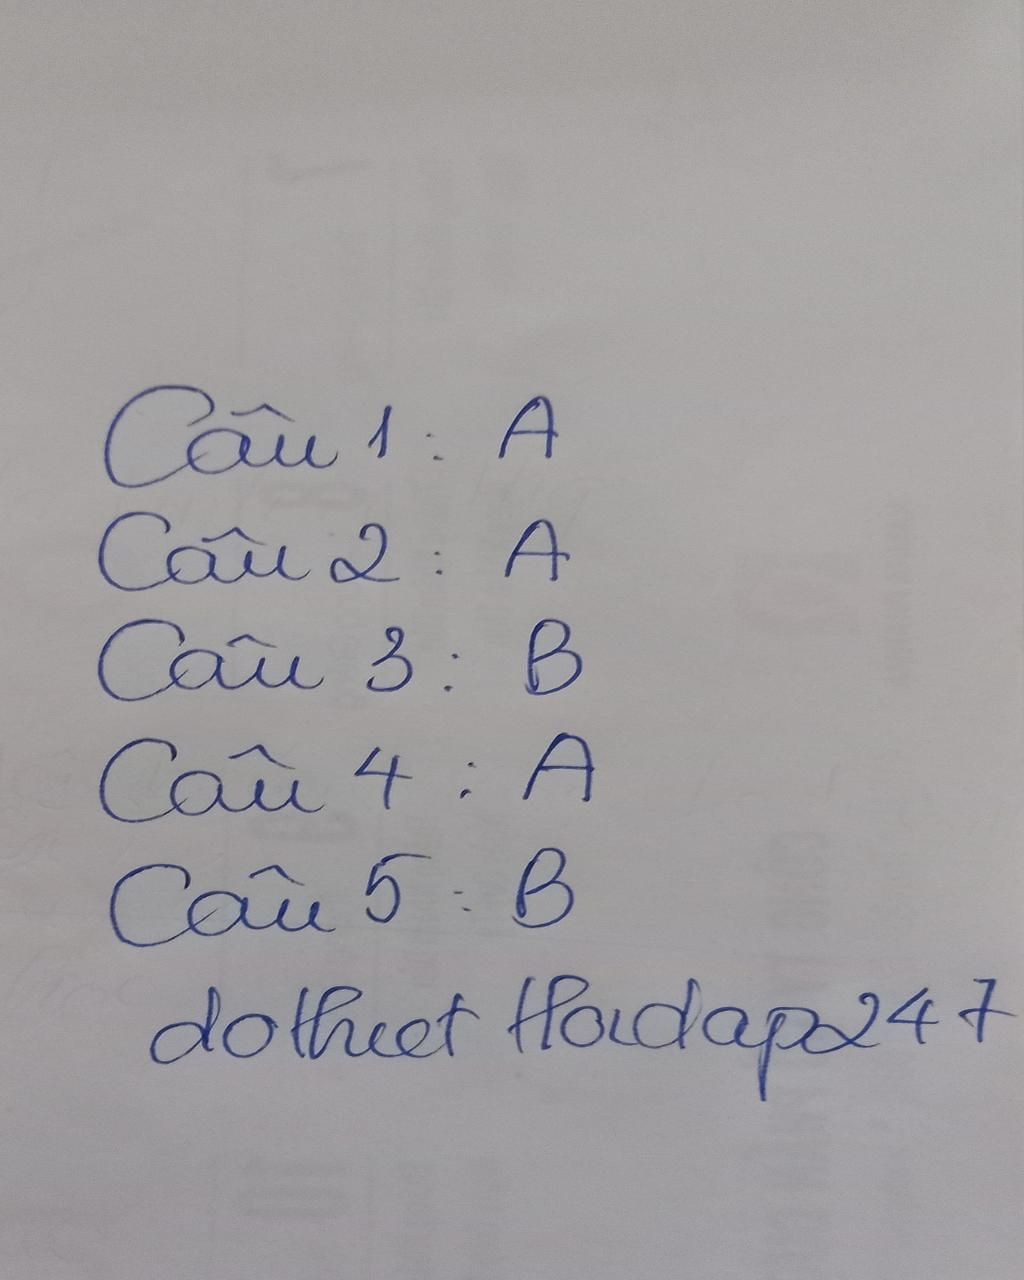 Câu 1 : A
Câu 2 : A
Câu 3 : B
Câu 4 : A
Câu 5 : B
dothuet Hoidap247